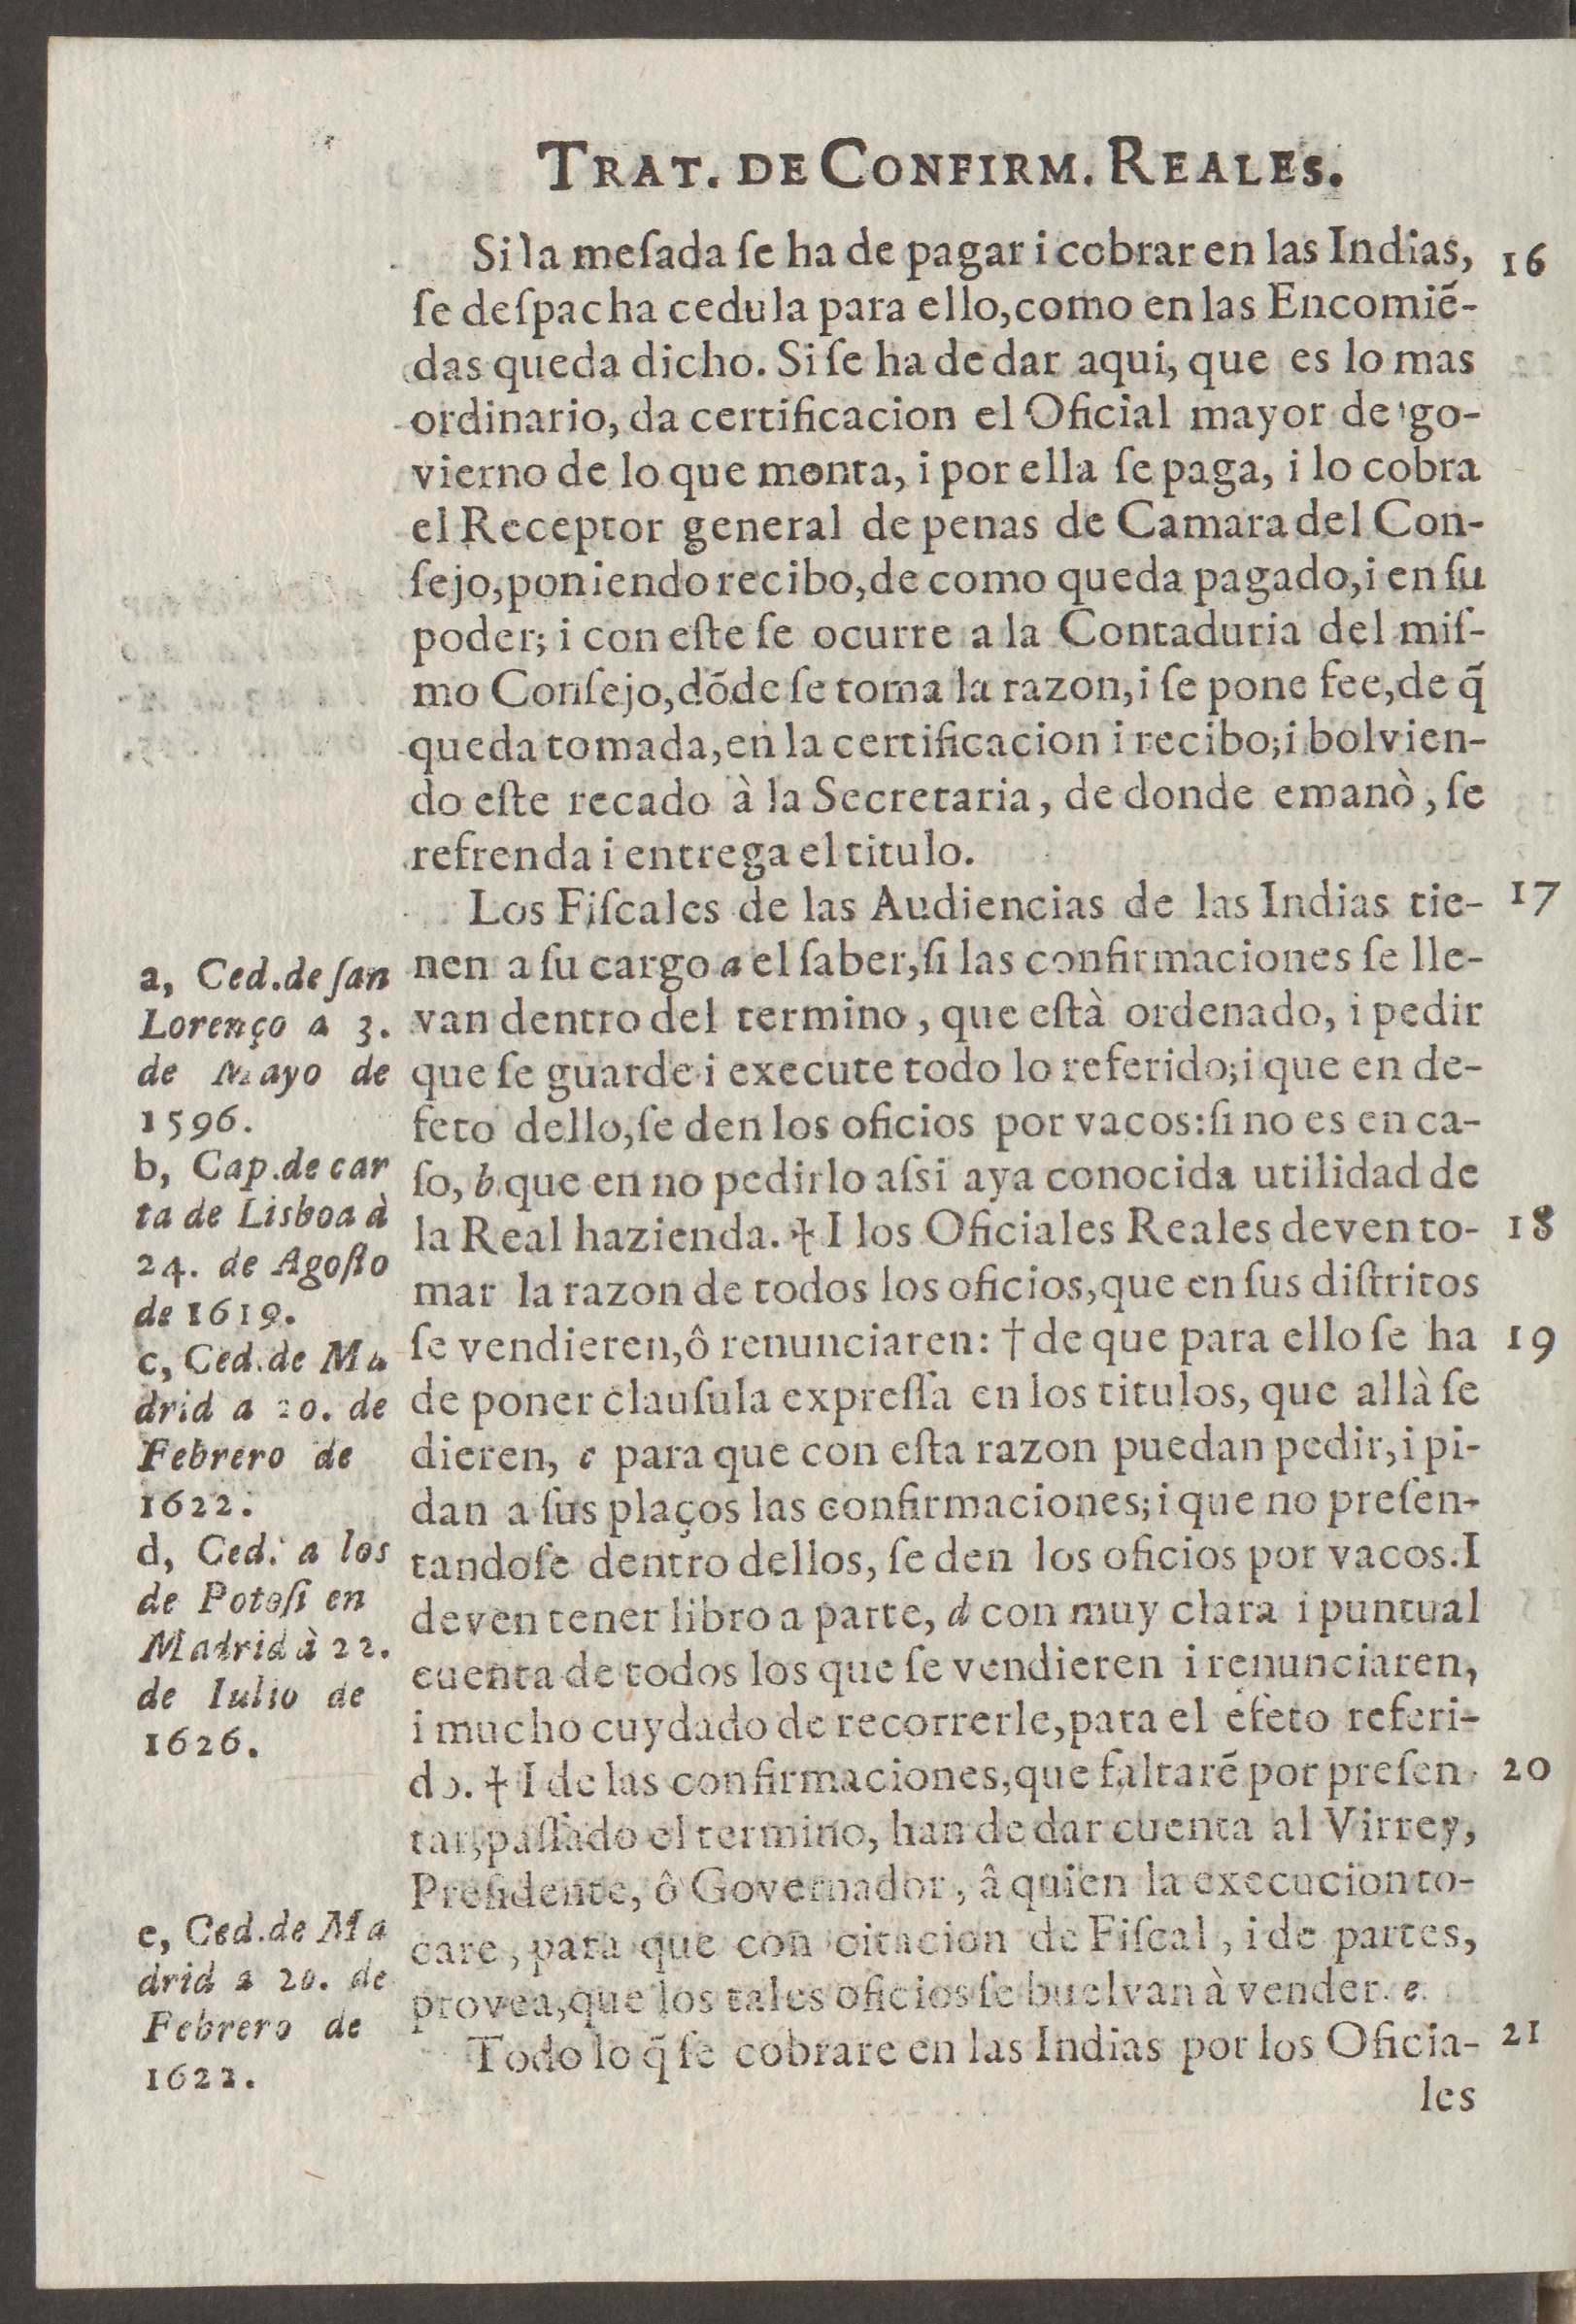 TRAT. DE CONFIRM. REALES.
Si la meſada ſe ha de pagar i cobrar en las Indias, 16
ſe deſpacha cedula para ello,como en las Encomiẽ-
das queda dicho. Si ſe ha de dar aqui, que es lo mas
ordinario, da certificacion el Oficial mayor de go-
vierno de lo que monta, i por ella ſe paga, i lo cobra
el Receptor general de penas de Camara del Con-
ſejo,poniendo recibo,de como queda pagado,i en ſu
poder; i con eſte ſe ocurre a la Contaduria del miſ-
mo Conſejo,dõde ſe toma la razon,i ſe pone fee,de q̃
queda tomada,en la certificacion i recibo;i bolvien-
do eſte recado à la Secretaria, de donde emanò, ſe
refrenda i entrega el titulo.
Los Fiſcales de las Audiencias de las Indias tie- 17
nen a ſu cargo a el ſaber,ſi las confirmaciones ſe lle-
van dentro del termino, que eſtà ordenado, i pedir
que ſe guarde i execute todo lo referido;i que en de-
feto dello,ſe den los oficios por vacos:ſi no es en ca-
ſo, b que en no pedirlo aſsi aya conocida utilidad de
la Real hazienda. † I los Oficiales Reales deven to- 18
mar la razon de todos los oficios,que en ſus diſtritos
ſe vendieren,ô renunciaren: † de que para ello ſe ha 19
de poner clauſula expreſſa en los titulos, que allà ſe
dieren, c para que con eſta razon puedan pedir, i pi-
dan a ſus plaços las confirmaciones; i que no preſen-
tandoſe dentro dellos, ſe den los oficios por vacos.I
deven tener libro a parte, d con muy clara i puntual
cuenta de todos los que ſe vendieren i renunciaren,
i mucho cuydado de recorrerle,para el efeto referi-
do. † I de las confirmaciones,que faltarẽ por preſen- 20
tar,paſſado el termino, han de dar cuenta al Virrey,
Preſidente, ô Governador, â quien la execucion to-
care, para que con citacion de Fiſcal, i de partes,
provea,que los tales oficios ſe buelvan à vender. e.
Todo lo q̃ ſe cobrare en las Indias por los Oficia- 21
les
a, Ced.de ſan
Lorenço a 3.
de Mayo de
1596.
b, Cap.de car
ta de Lisboa à
24. de Agoſto
de 1619.
c, Ced.de Ma
drid a 20. de
Febrero de
1622.
d, Ced. a los
de Potoſi en
Madrid à 22.
de Iulio de
1626.
e, Ced.de Ma
drid a 20. de
Febrero de
1622.